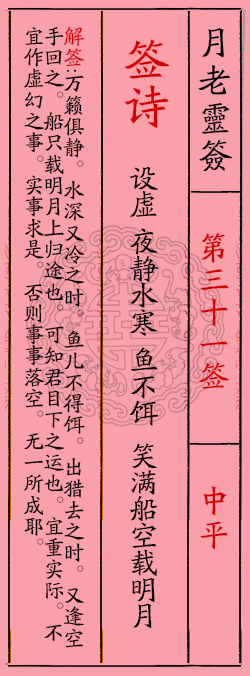 月老靈簽
第三十一签
中平
签诗
设虚 夜静水寒 鱼不饵 笑满船空载明月
解签:万籁俱静。水深又冷之时。鱼儿不得饵。出猎去之时。又逢空
手回之。船只载明月上归途也。可知君目下之运也。宜重实际。不
宜作虚幻之事。实事求是。否则事事落空。无一所成耶。